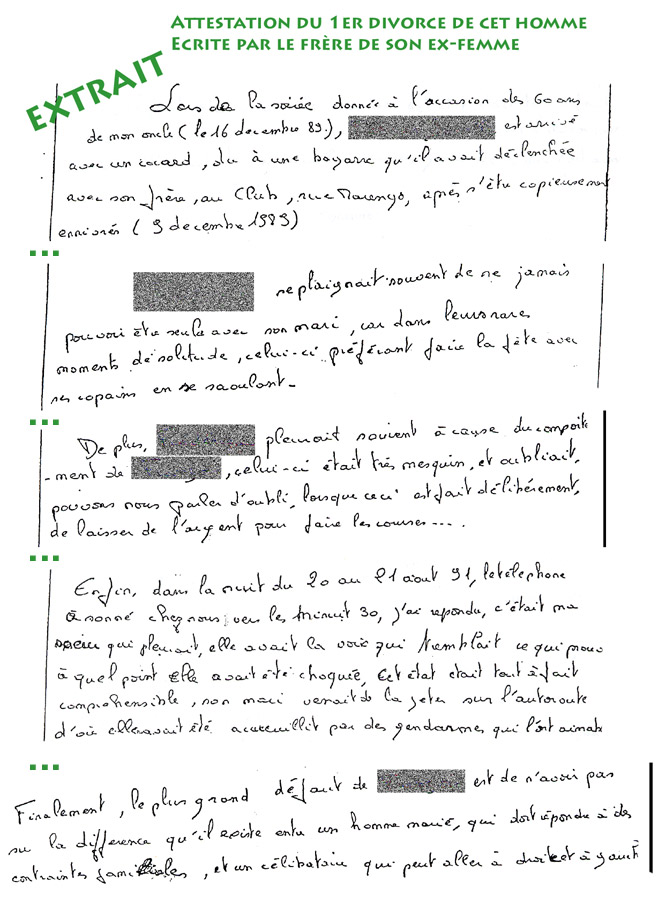 Attestation du 1er divorce de cet homme
Ecrite par le frère de son ex-femme
EXTRAIT
Lors de la soirée donnée à l'occasion des 60 ans
de mon oncle (le 16 decembre 89.), est arrivé
avec un cocard, du à une bagarre qu'il avait déclenchée
avec son frère, au Club, rue Marengo, après s'être copieusement
ennivrés (9 decembre 1989)
...
se plaignait souvent de ne jamais
pouvoir être seule avec son mari, car dans leurs rares
moments de solitude, celui-ci préférant faire la fête avec
ses copains en se saoulant.
...
De plus, pleurait souvent à cause du comporte
-ment de , celui-ci était très mesquin, et oubliait,
pouvons nous parler d'oubli, lorsque ceci est fait délibérement,
de laisser de l'argent pour faire les courses....
...
Enfin, dans la nuit du 20 au 21 aout 91, le téléphone
à sonné chez nous vers les Minuit 30, j'ai repondu, c'était ma
soeur qui pleurait, elle avait la voix qui tremblait ce qui prouv
à quel point elle avait été choquée, Cet état etait tout à fait
comprehensible, son mari venait de la jeter sur l'autoroute
d'où elle avait été acceuillit par des gendarmes qui l'ont aimab
...
Finalement, le plus grand défaut de est de n'avoir pas
su la difference qu'il existe entre un homme marié, qui doit répondre à des
contraintes familiales, et un célibataire qui peut aller à droite et à gauch